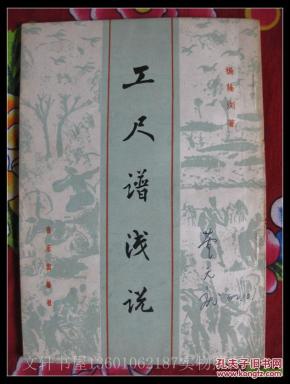 工尺谱浅说
杨荫浏著
音乐出版社
文轩书屋13601062187实物拍
孔夫子旧书网